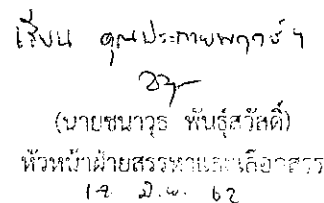 เรียน คุณประกายพฤกษ์ ฯ
(นายชนาวุธ พันธุ์สวัสดิ์)
หัวหน้าฝ่ายสรรหาและเลือกสรร
มี.ค. 62